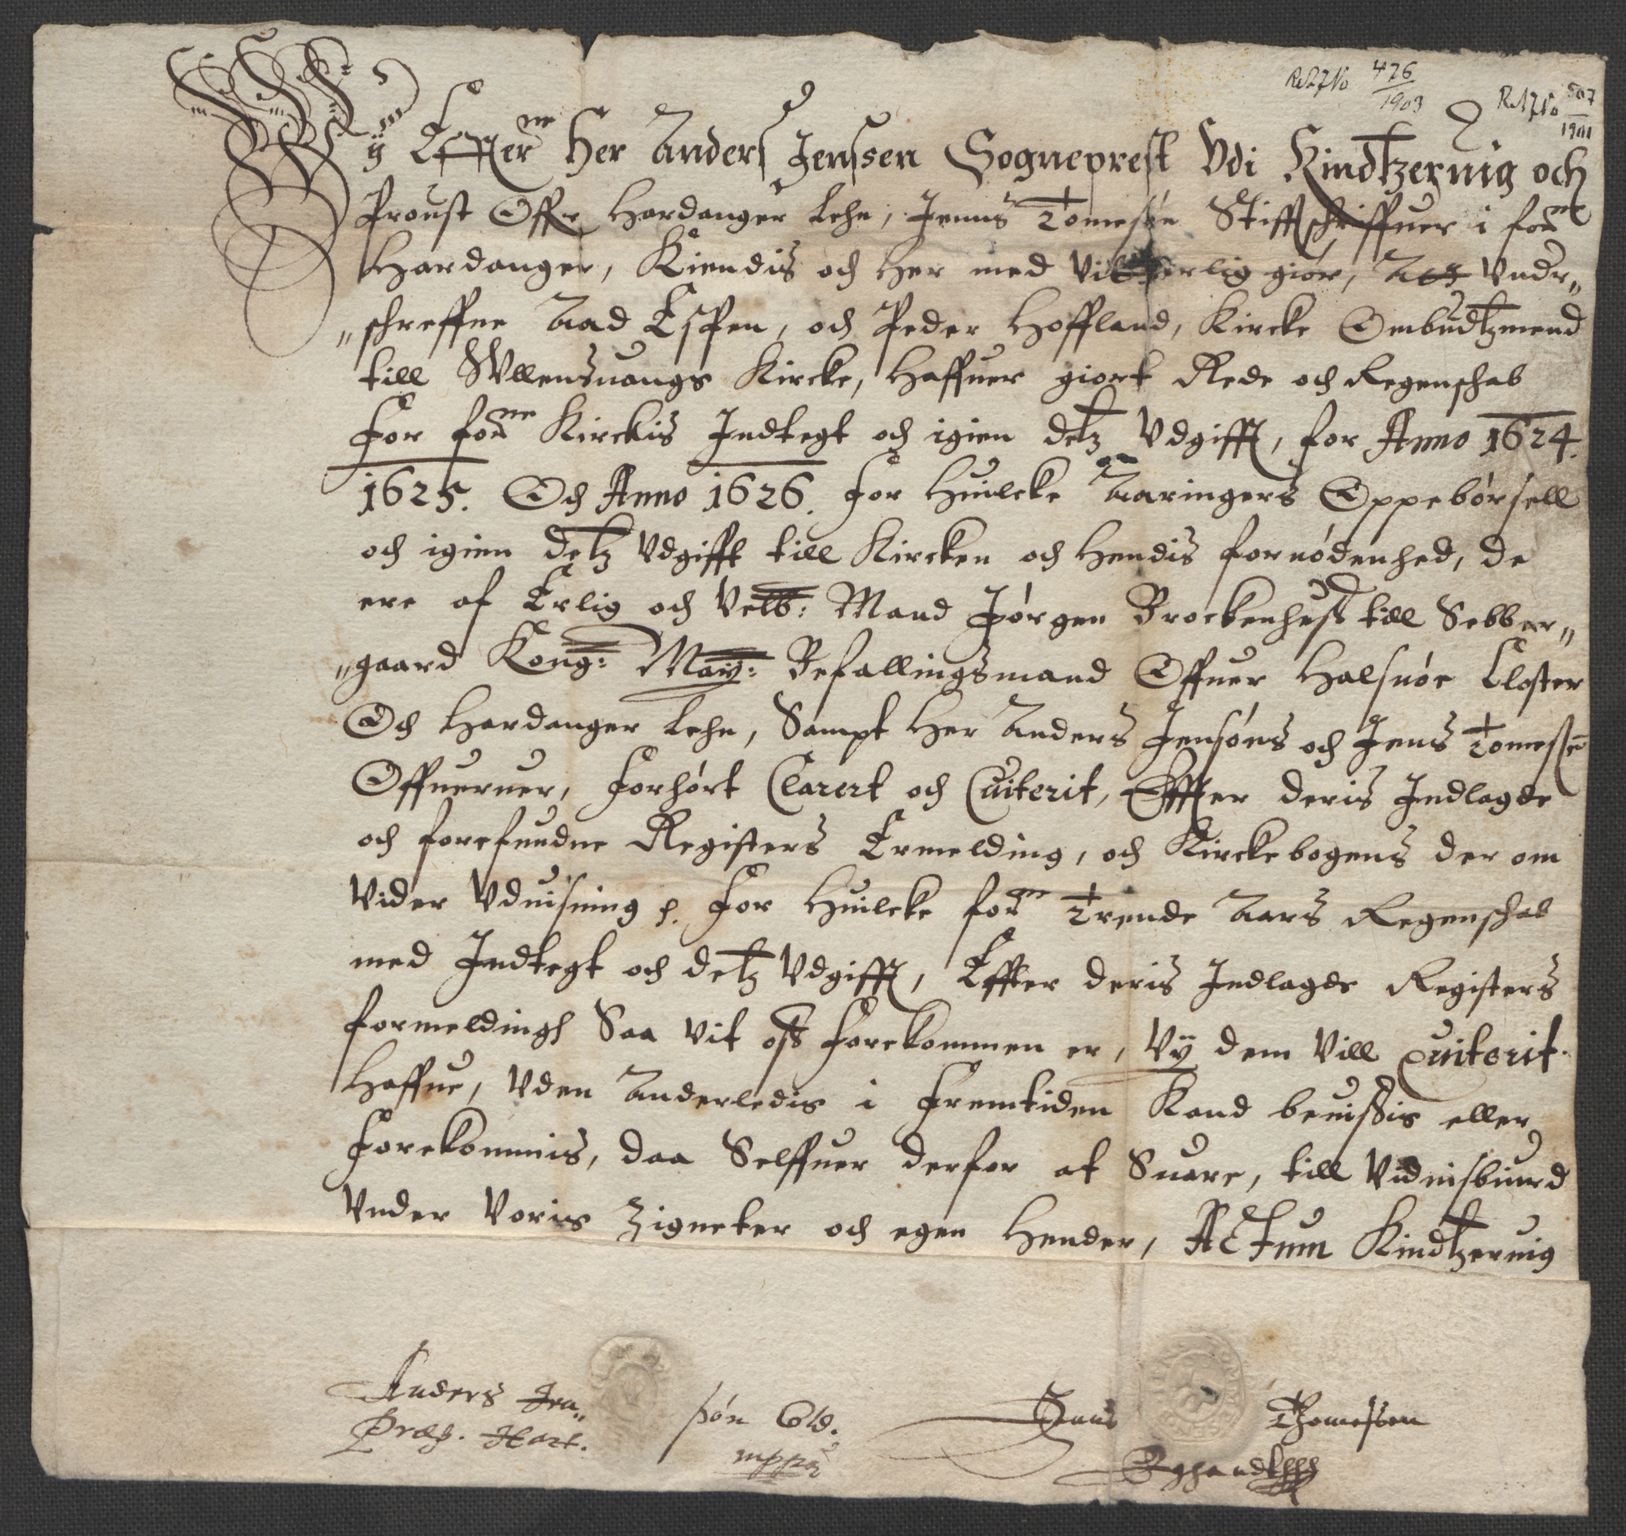 R.A. J. No 476/1903
R.A. J. No 507/1901
Wy Effterne Her Anders Jenssen Sogneprest Vdi Kindtzeruig och
Proust Offr Hardanger Lehn, Jenns Tomesøn Stifftschriffuer i forne
Hardanger, Kiendis och her med Vitterlig giør, Att Vndr„
„schreffne Aad Espen, och Peder Hoffland, Kircke Ombudtzmend
till Wllensuangs Kircke, Haffuer giort Rede och Regenschab
For forne Kirckis Indtegt och igien detz Vdgifft, for Anno 1624.
1625. Och Anno 1626. For Huilcke Aaringers Oppebørsell
och igien detz Vdgifft till Kircken och Hendis fornødenhed, de
ere af Erlig och Velb: Mand Jørgen Brockenhuss till Sebber„
„gaard Kong: May: Befallingsmand Offuer Halsnøe Closter
Och Hardanger Lehn, Sampt Her Anders Jensøns och Jens Tomesse
Offueruer, Forhørt Clarert och Cuiterit, Effter deris Indlagde
och forefundne Registers Ermelding, och Kirckebogens der om
Vider Vduisning p. For Huilcke forne Trende Aars Regenschab
med Indtegt och detz Vdgifft, Effter deris Indlagde Registers
formeldingh Saa vit oss Forekommen er, Vy dem Vill Quiterit
Haffue, Vden Anderledis i Fremtiden Kand beuissis eller
Forekommis, daa Selffuer derfor at Suare, till Vidnisbiurd
Vnder Voris Zigneter och egen Hender, Actum Kindtzeruig
Anders Jen„ søn Old. Jens Thomessen
Præp. Hart. mppa Eghandtt